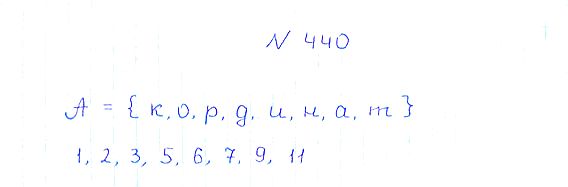 № 440
A = { к, о, р, д, и, н, а, т }
1, 2, 3, 5, 6, 7, 9, 11